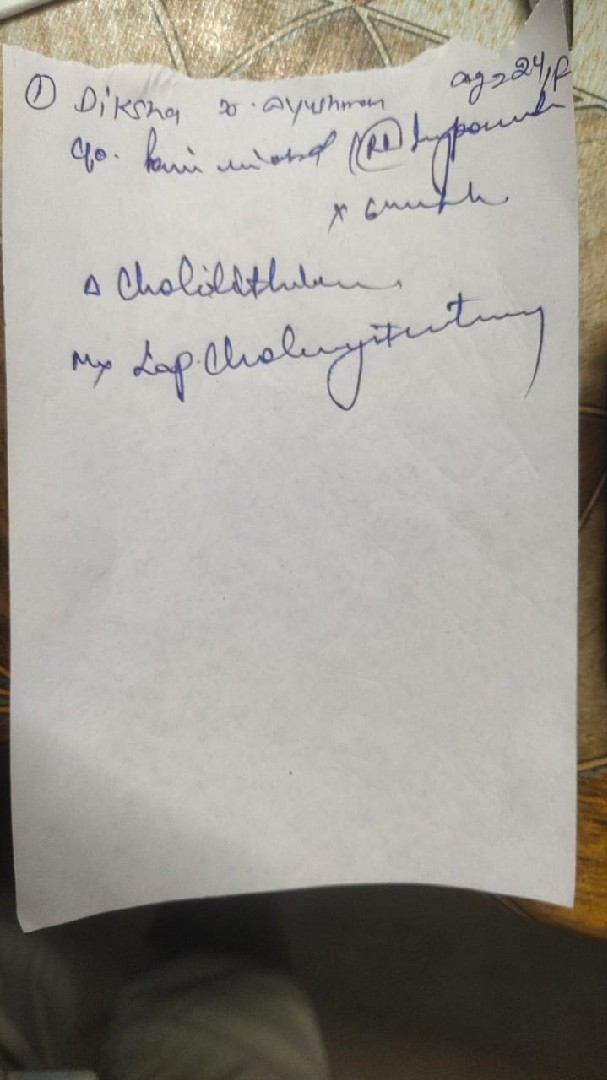 ① Diksha ayushman age 24/F
c/o. Pain in abd (Rt) hypoch
x 6 month
Δ Cholilithi
Mx Lap. Cholecystectomy